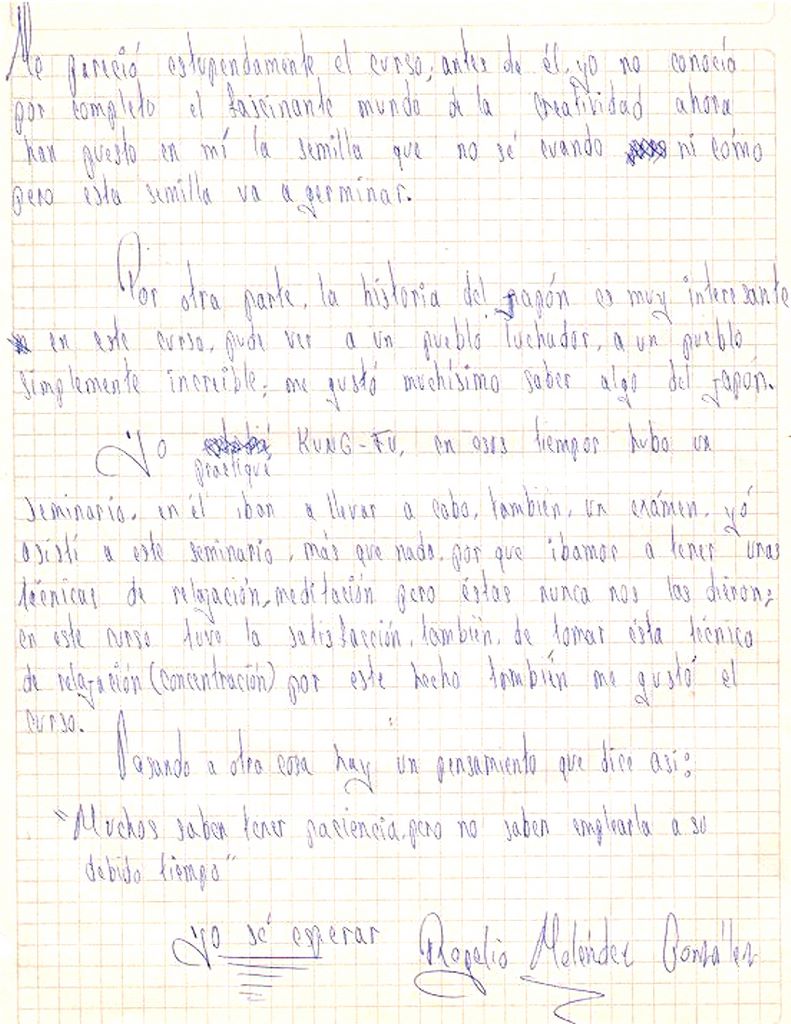 Me pareció estupendamente el curso, antes de él, yo no conocía
por completo el fascinante mundo de la creatividad ahora
han puesto en mí la semilla que no sé cuando ni cómo
pero esta semilla va a germinar.
Por otra parte, la historia del Japón es muy interesante
en este curso, pude ver a un pueblo luchador, a un pueblo
simplemente increible; me gustó muchísimo saber algo del Japón.
Yo practiqué KUNG-FU, en esos tiempos hubo un
seminario, en él iban a llevar a cabo, también, un exámen, yó
asistí a este seminario, más que nada, por que ibamos a tener unas
técnicas de relajación, meditación pero éstas nunca nos las dieron;
en este curso tuve la satisfacción, también, de tomar ésta técnica
de relajación (concentración) por este hecho también me gustó el
curso.
Pasando a otra cosa hay un pensamiento que dice así:
"Muchos saben tener paciencia, pero no saben emplearla a su
debido tiempo"
Yo sé esperar Rogelio Meléndez González